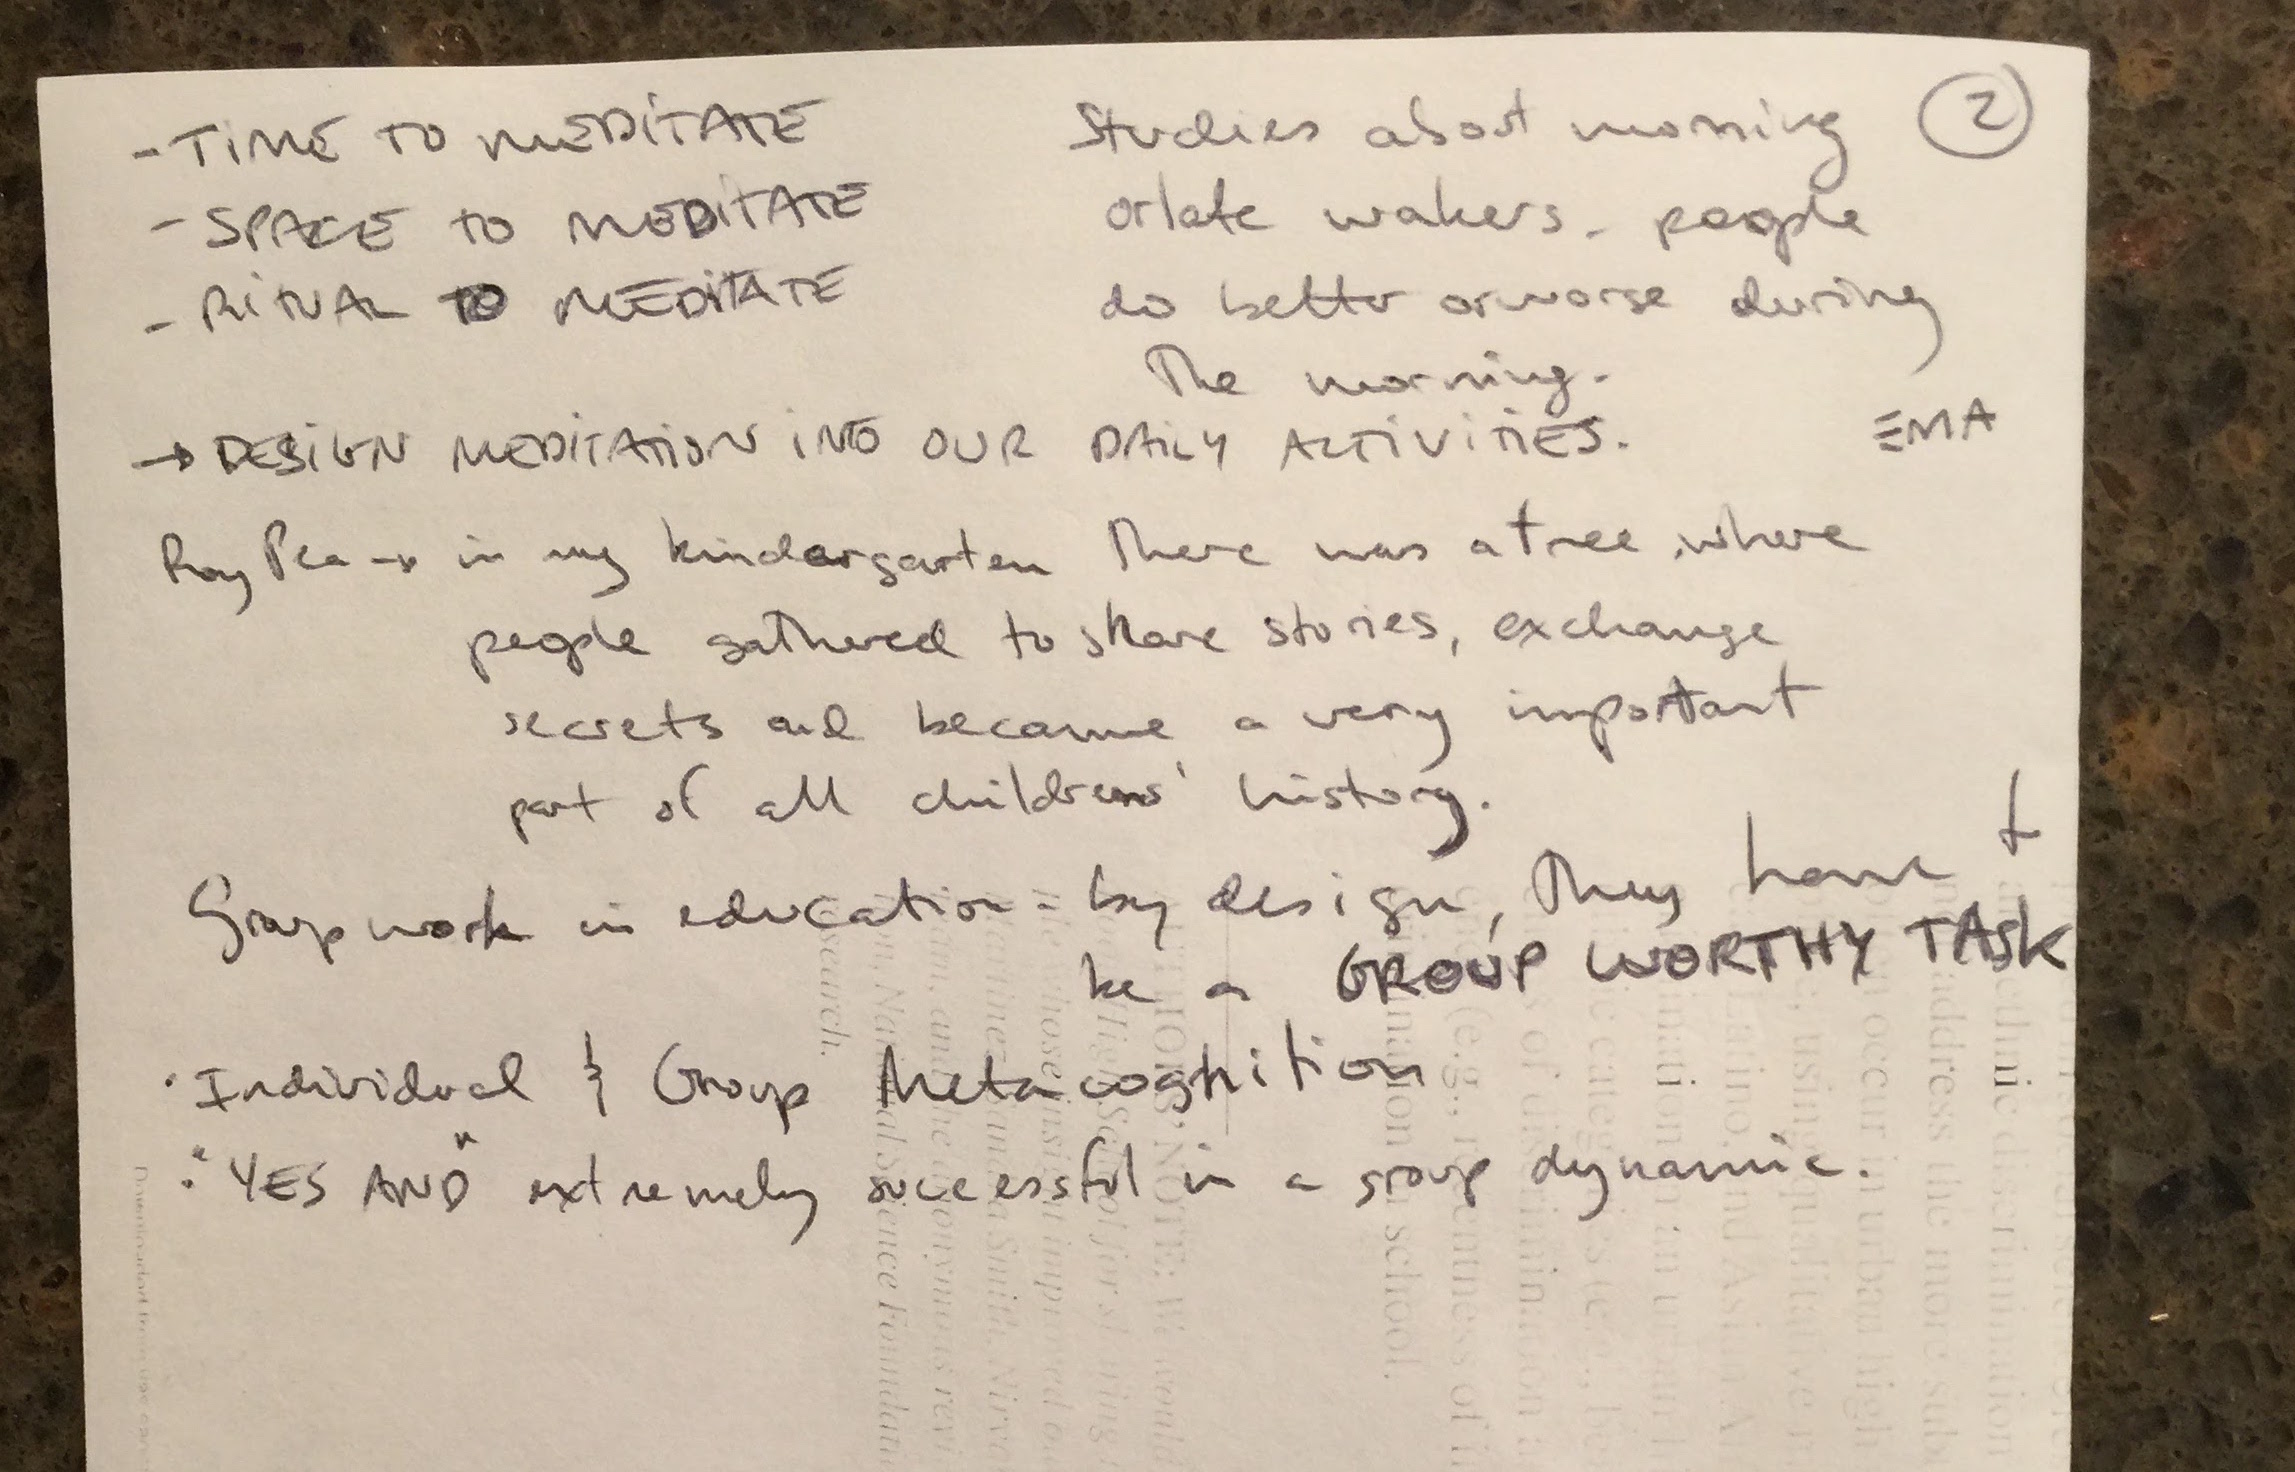 ②
- TIME TO MEDITATE
- SPACE TO MEDITATE
- RITUAL TO MEDITATE
Studies about morning
or late wakers. people
do better or worse during
The morning.
→ DESIGN MEDITATION INTO OUR DAILY ACTIVITIES.
EMA
Roy Pea → in my kindergarten There was a tree where
people gathered to share stories, exchange
secrets and became a very important
part of all childrens' history.
Group work in education - by design, They have to
be a GROUP WORTHY TASK
· Individual & Group Metacognition
· "YES AND" extremely successful in a group dynamic.